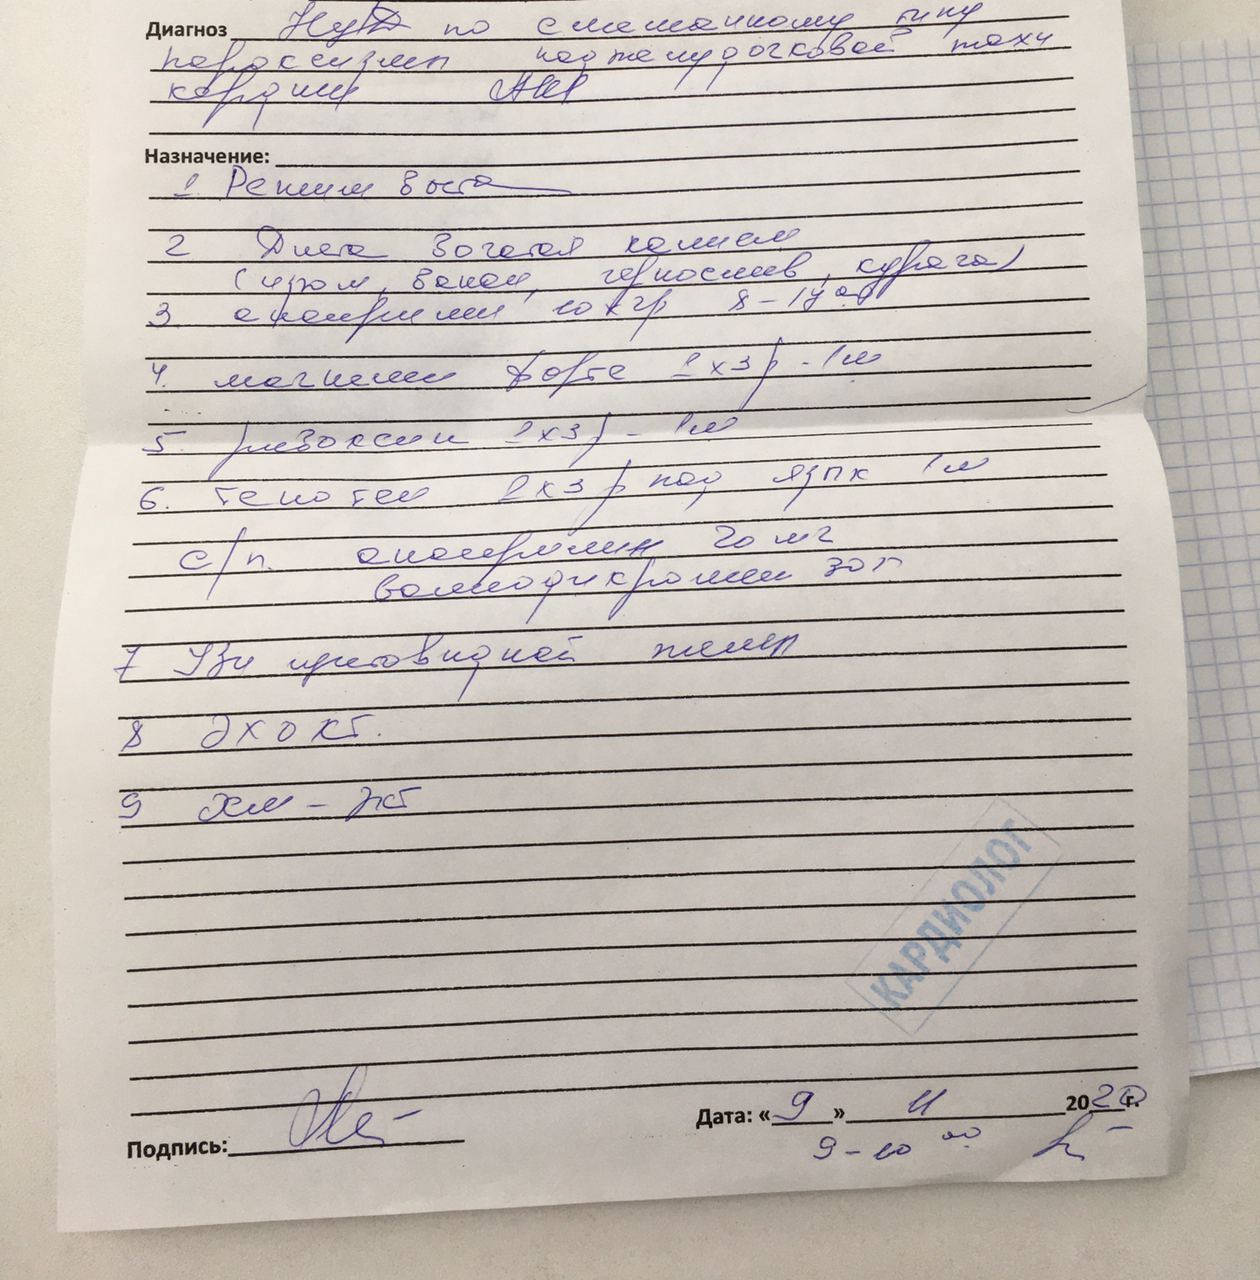 Диагноз НЦД по смешанному типу
пароксизмы наджелудочковой тахи
кардии
Назначение:
1. Режим быта
2 Диета богатая калием
(изюм, банан, чернослив, курага)
3. анаприлин 10 мг 8 - 17 00
4. магнелис форте 1х3 р - 1 м
5. рибоксин 1х3 р - 1 м
6. тенотен 1х3 р под язык 1 м
с/п. анаприлин 20 мг
валокордин 30
7 Узи щитовидной желез
8 ЭХО КГ.
9 ХМ - ЭКГ
КАРДИОЛОГ
Подпись:
Дата: «9» 11 2020 г.
9 - 10 00